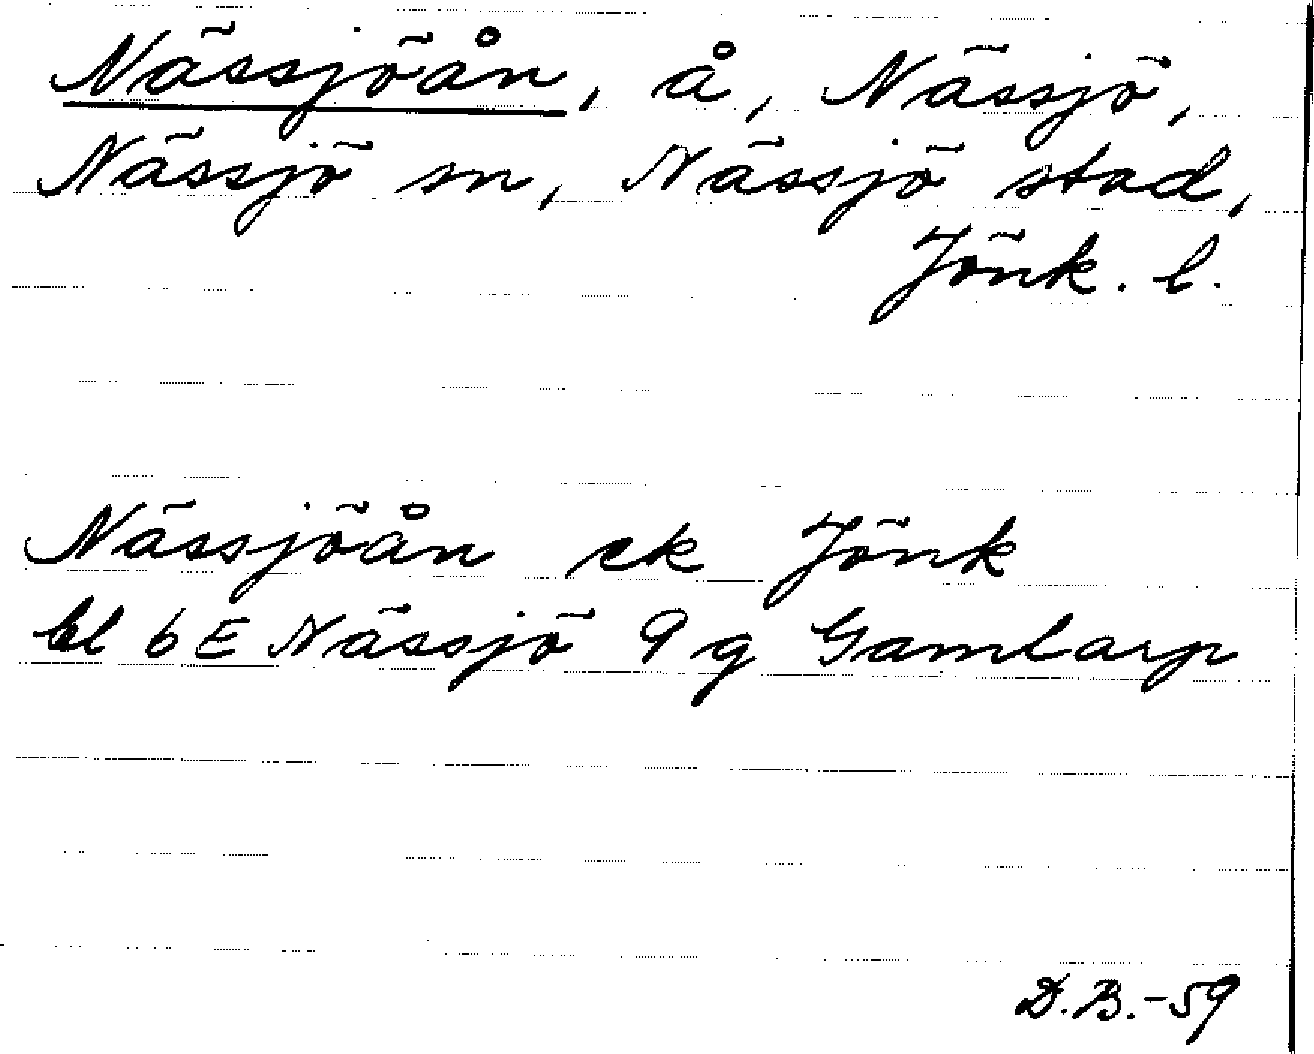 Nässjöån, å, Nässjö,
Nässjö sn, Nässjö stad,
Jönk. l.
Nässjöån ek Jönk
bl 6E Nässjö 9g Gamlarp
D.B.-59